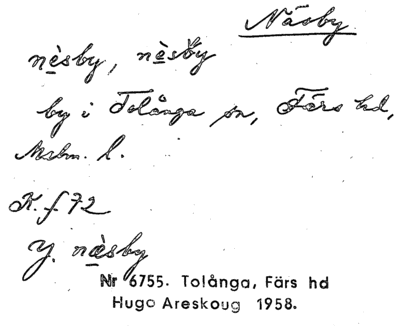 Näsby
nèsby, nèsby
by i Tolånga sn, Färs hd,
Mslm. l.
K. f. 72
y. nàsby
Nr 6755. Tolånga, Färs hd
Hugo Areskoug 1958.